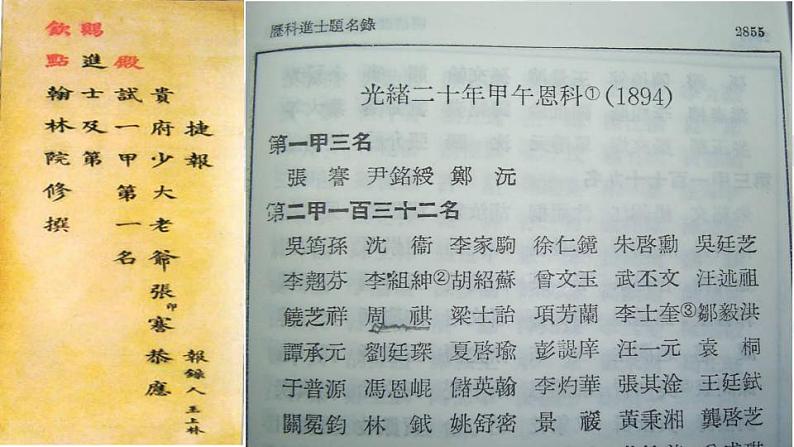 捷報
貴府少大老爺張印謇恭應
殿試一甲第一名
賜進士及第
欽點翰林院修撰
報錄人 王上林
歷科進士題名錄
2855
光緒二十年甲午恩科①(1894)
第一甲三名
張謇 尹銘綬 鄭沅
第二甲一百三十二名
吳筠孫 沈衞 李家駒 徐仁鏡 朱啓勳 吳廷芝
李翹芬 李組紳②胡紹蘇 曾文玉 武丕文 汪述祖
饒芝祥 周祺 梁士詒 項芳蘭 李士奎③鄒毅洪
譚承元 劉廷琛 夏啓瑜 彭諟庠 汪一元 袁桐
于普源 馮恩崐 儲英翰 李灼華 張其淦 王廷鉽
關冕鈞 林鉞 姚舒密 景褑 黃秉湘 龔啓芝